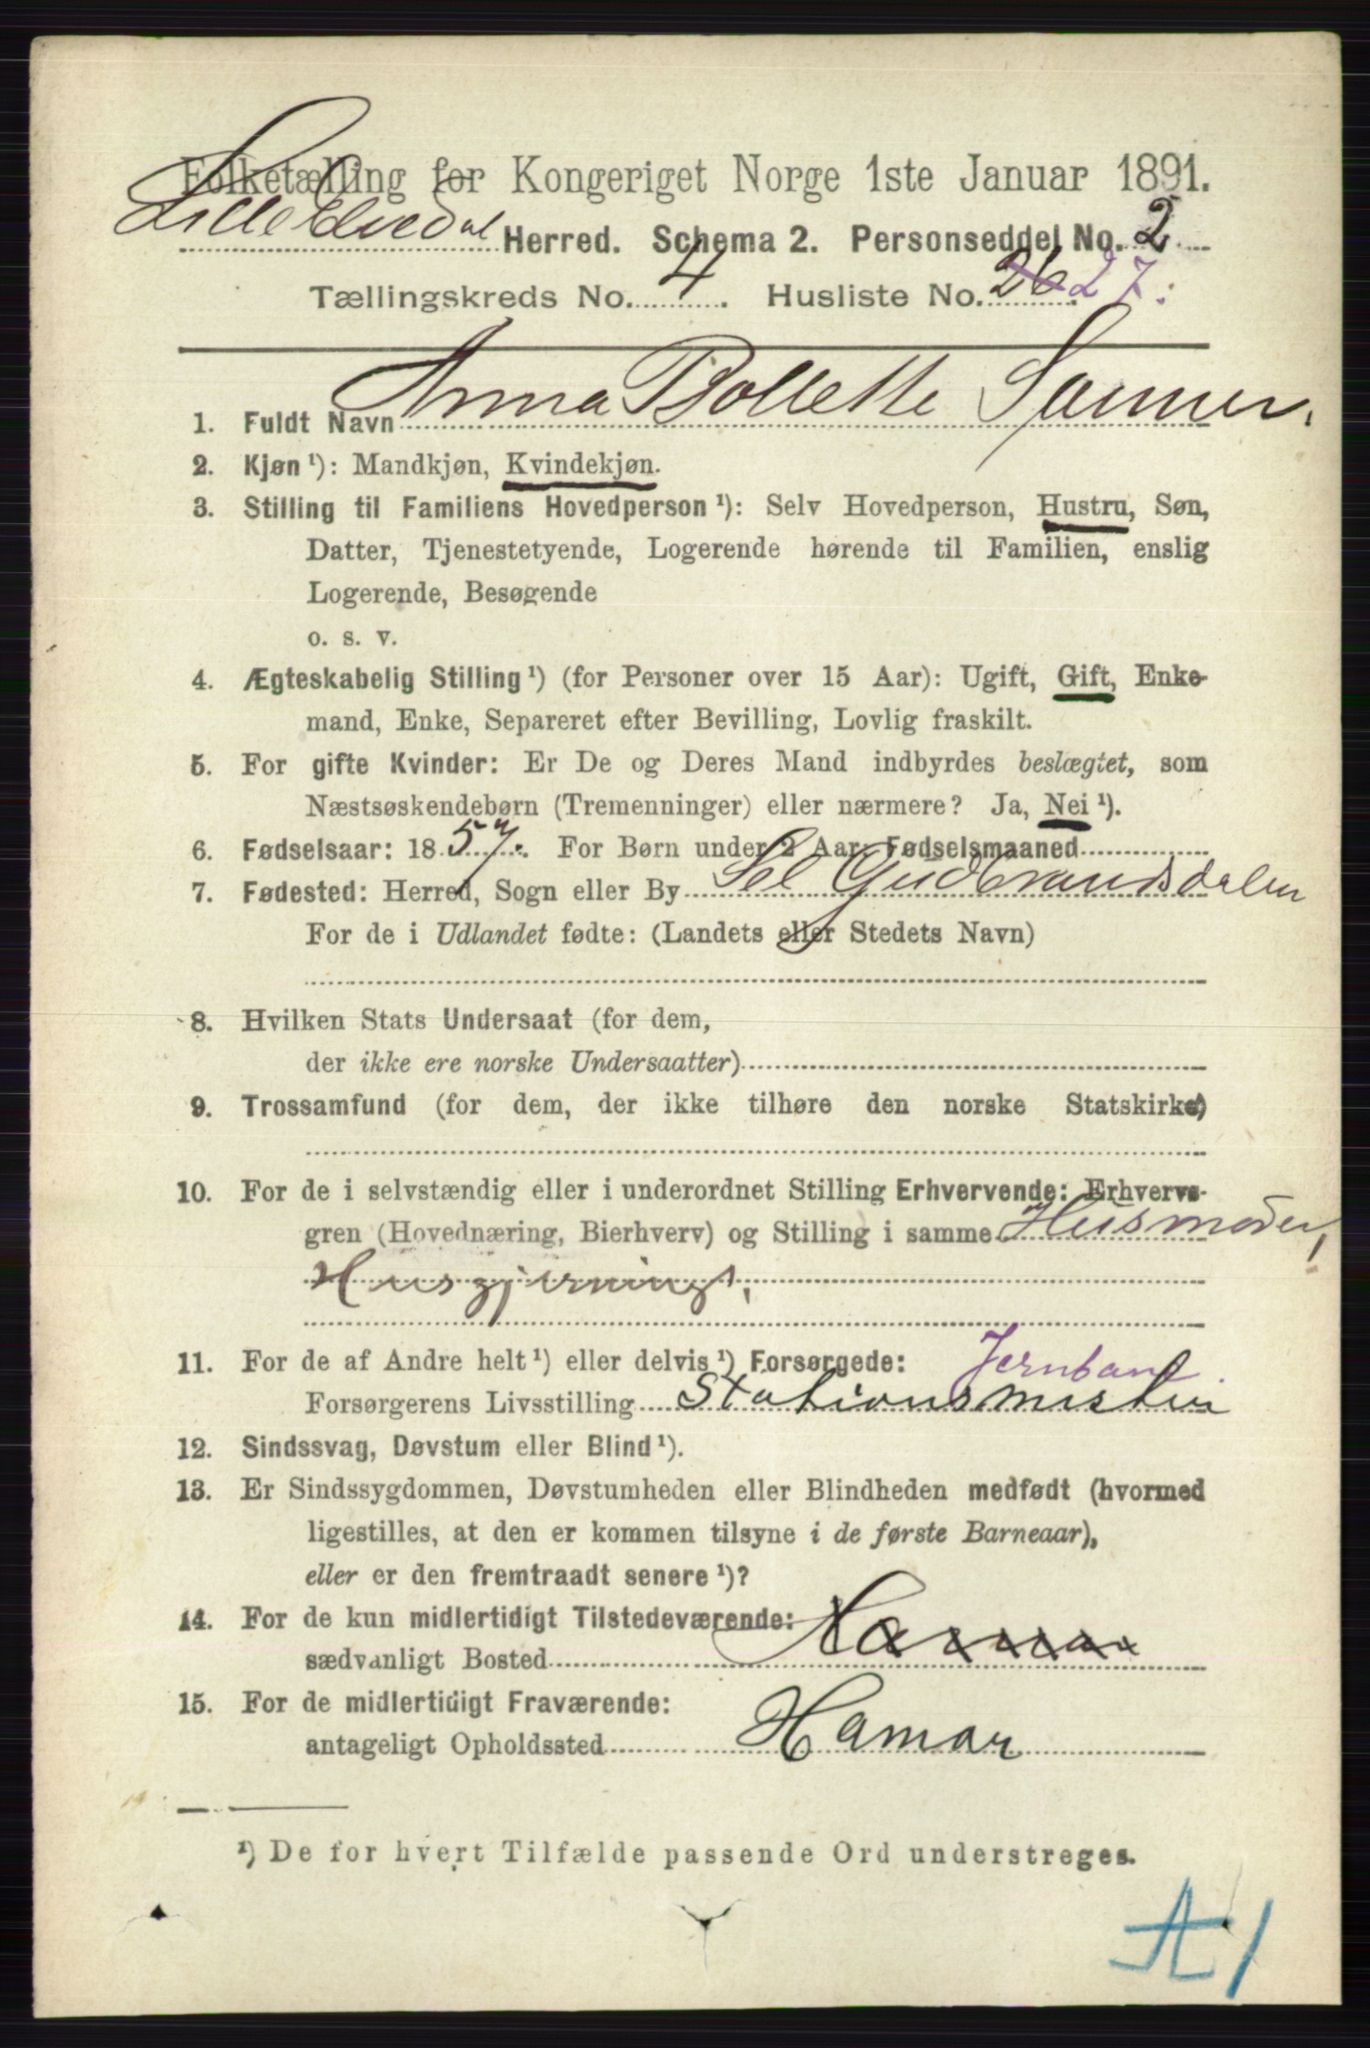 Folketælling for Kongeriget Norge 1ste Januar 1891.
Lille Elvedal Herred. Schema 2. Personseddel No. 2
Tællingskreds No. 4. Husliste No. 26 27.
1. Fuldt Navn Anna Bollette Sanner.
2. Kjøn ¹): Mandkjøn, Kvindekjøn.
3. Stilling til Familiens Hovedperson ¹): Selv Hovedperson, Hustru, Søn,
Datter, Tjenestetyende, Logerende hørende til Familien, enslig
Logerende, Besøgende
o. s. v.
4. Ægteskabelig Stilling ¹) (for Personer over 15 Aar): Ugift, Gift, Enke-
mand, Enke, Separeret efter Bevilling, Lovlig fraskilt.
5. For gifte Kvinder: Er De og Deres Mand indbyrdes beslægtet, som
Næstsøskendebørn (Tremenninger) eller nærmere? Ja, Nei ¹).
6. Fødselsaar: 1857. For Børn under 2 Aar: Fødselsmaaned
7. Fødested: Herred, Sogn eller By Sel Gudbrandsdalen
For de i Udlandet fødte: (Landets eller Stedets Navn)
8. Hvilken Stats Undersaat (for dem,
der ikke ere norske Undersaatter)
9. Trossamfund (for dem, der ikke tilhøre den norske Statskirke)
10. For de i selvstændig eller i underordnet Stilling Erhvervende: Erhvervs-
gren (Hovednæring, Bierhverv) og Stilling i samme Husmoder,
Husgjerning.
11. For de af Andre helt ¹) eller delvis ¹) Forsørgede: Jernban
Forsørgerens Livsstilling Stationsmester
12. Sindssvag, Døvstum eller Blind ¹).
13. Er Sindssygdommen, Døvstumheden eller Blindheden medfødt (hvormed
ligestilles, at den er kommen tilsyne i de første Barneaar),
eller er den fremtraadt senere ¹)?
14. For de kun midlertidigt Tilstedeværende:
sædvanligt Bosted Hamar
15. For de midlertidigt Fraværende:
antageligt Opholdssted Hamar
¹) De for hvert Tilfælde passende Ord understreges.
A1